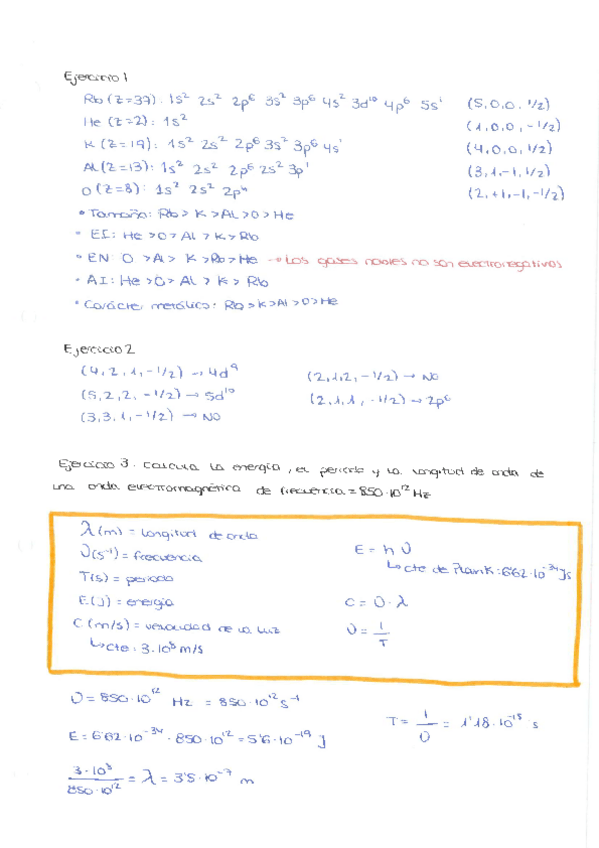 Ejercicio 1
Rb (Z=37): 1s² 2s² 2p⁶ 3s² 3p⁶ 4s² 3d¹⁰ 4p⁶ 5s¹ (5,0,0,1/2)
He (Z=2): 1s² (1,0,0,-1/2)
K (Z=19): 1s² 2s² 2p⁶ 3s² 3p⁶ 4s¹ (4,0,0,1/2)
Al (Z=13): 1s² 2s² 2p⁶ 2s² 3p¹ (3,1,-1,1/2)
O (Z=8): 1s² 2s² 2p⁴ (2,+1,-1,-1/2)
• Tamaño: Rb > K > Al > O > He
• EI: He > O > Al > K > Rb
• EN: O > Al > K > Rb > He → Los gases nobles no son electronegativos
• AI: He > O > Al > K > Rb
• Carácter metálico: Rb > K > Al > O > He
Ejercicio 2
(4,2,1,-1/2) → 4d⁹ (2,1,2,-1/2) → NO
(5,2,2,-1/2) → 5d¹⁰ (2,1,1,-1/2) → 2p⁶
(3,3,1,-1/2) → NO
Ejercicio 3. Calcula la energía, el periodo y la longitud de onda de
una onda electromagnética de frecuencia = 850·10¹² Hz
λ (m) = longitud de onda
υ (s⁻¹) = frecuencia E = h υ
T (s) = periodo ↳ cte de Plank: 6'62·10⁻³⁴ Js
E (J) = energía C = υ·λ
C (m/s) = velocidad de la luz υ = 1/T
↳ cte: 3·10⁸ m/s
υ = 850·10¹² Hz = 850·10¹² s⁻¹ T = 1/υ = 1'18·10⁻¹⁵ s
E = 6'62·10⁻³⁴ · 850·10¹² = 5'6·10⁻¹⁹ J
3·10⁸/850·10¹² = λ = 3'5·10⁻⁷ m